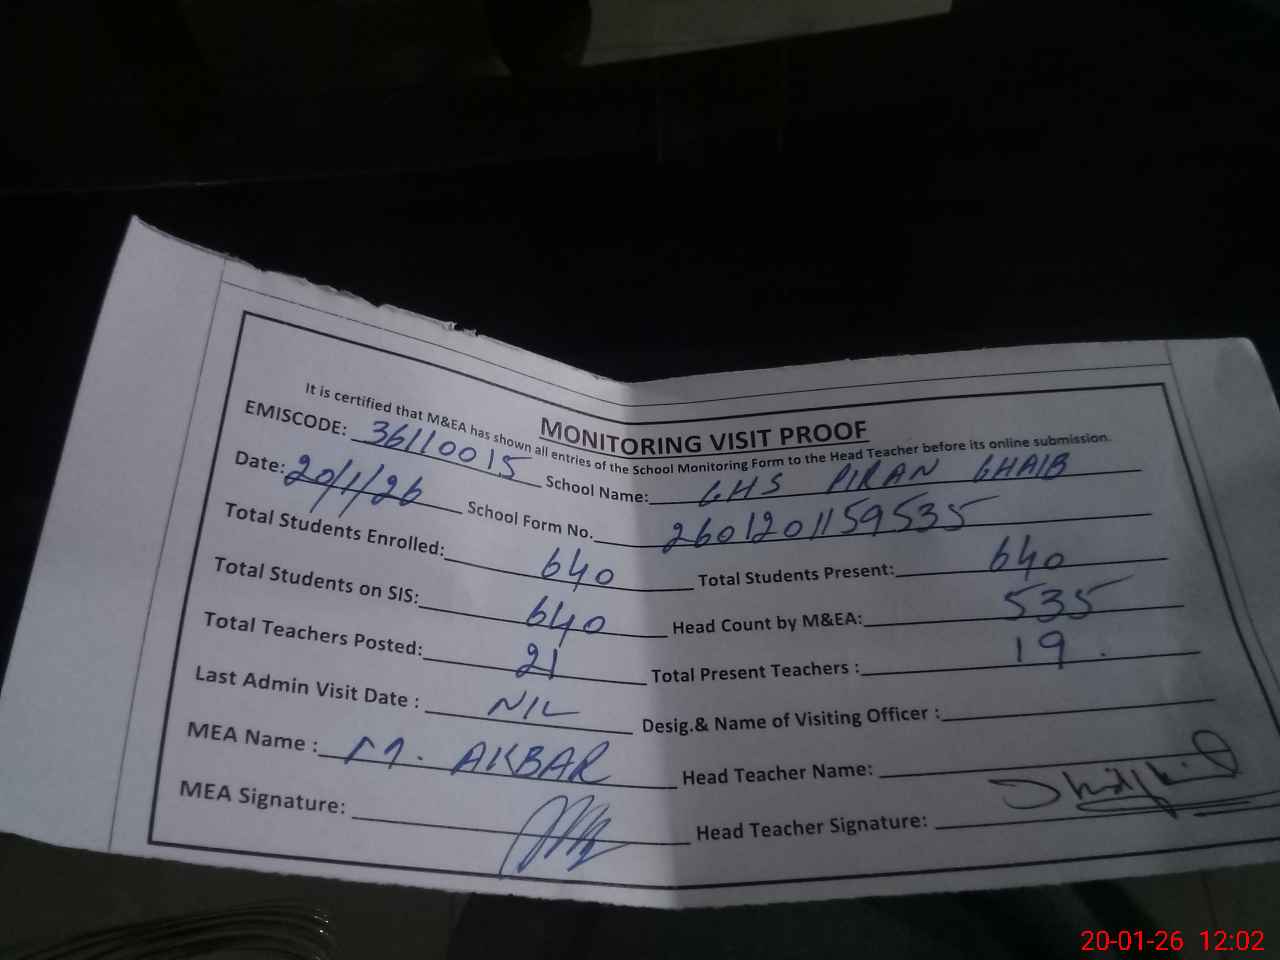 MONITORING VISIT PROOF
It is certified that M&EA has shown all entries of the School Monitoring Form to the Head Teacher before its online submission.
EMISCODE: 36110015 School Name: GHS PIRAN GHAIB
Date: 20/1/26 School Form No. 2601201159535
Total Students Enrolled: 640 Total Students Present: 640
Total Students on SIS: 640 Head Count by M&EA: 535
Total Teachers Posted: 21 Total Present Teachers : 19.
Last Admin Visit Date : NIL Desig.& Name of Visiting Officer :
MEA Name : M. AKBAR Head Teacher Name:
MEA Signature: Head Teacher Signature:
20-01-26 12:02